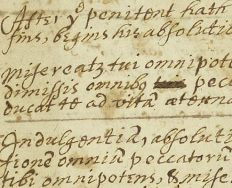 After yͤ penitent hath
finis: begins his absolutio
Misereatz tui omnipot
dimissis omnibꝫ pecc
ducat te ad vitā æterna
Indulgentiā, absoluti
tionē omniū peccatorū
tibi omnipotens, & mise